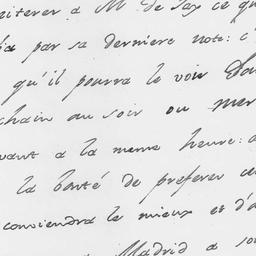 reiterer a M. de Sax ce qu
par sa derniere note: c'
qu'il pourra le voir
chain au soir ou mer
vant a la meme heure:
la bonté de preferer ce
conviendra le mieux et d'a
Madrid a so